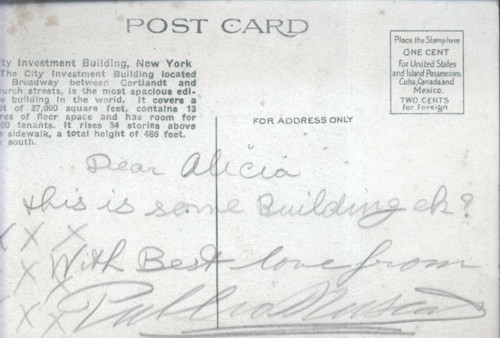 POST CARD
ty Investment Building, New York
The City Investment Building located
Broadway between Cortlandt and
urch streets, is the most spacious edi-
e building in the world. It covers a
ot of 27,000 square feet, contains 13
res of floor space and has room for
00 tenants. It rises 34 stories above
e sidewalk, a total height of 486 feet.
e south.
Place the Stamp here
ONE CENT
for United States
and Island Possessions
Cuba, Canada and
Mexico.
TWO CENTS
for Foreign
FOR ADDRESS ONLY
Dear Alicia
this is some Building eh?
X X X
With Best love from
X X
X X